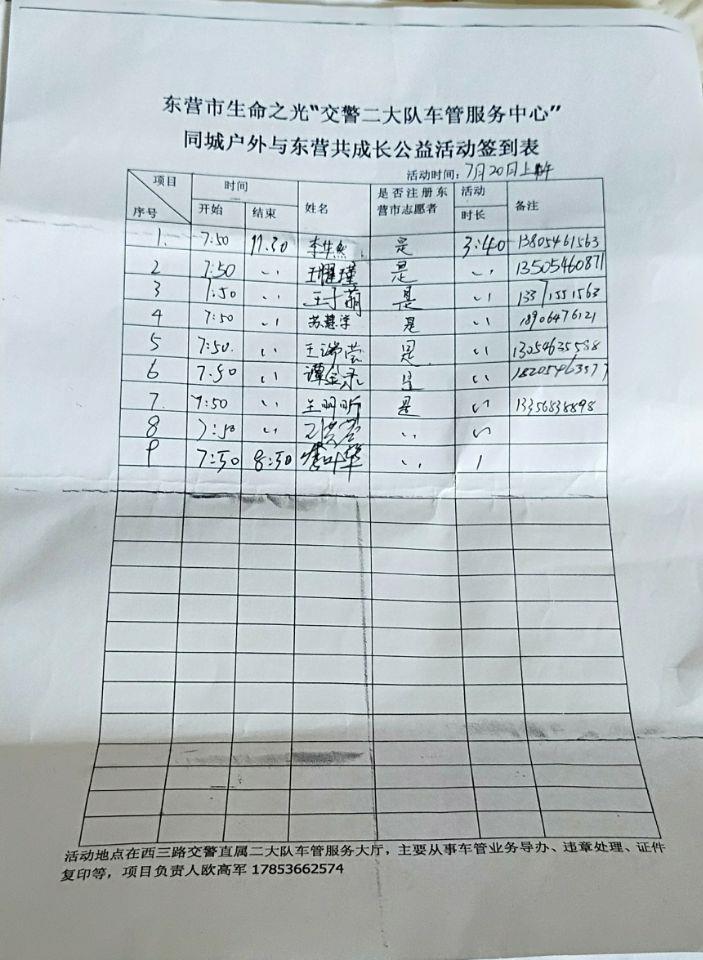 东营市生命之光“交警二大队车管服务中心”
同城户外与东营共成长公益活动签到表
活动时间：7月20日上午
项目 时间 姓名 是否注册东营市志愿者 活动时长 备注
序号 开始 结束
1. 7:50 11.30 是 3:40 13805461563
2 7:50 〃 王耀瑾 是 〃 13505460871
3 7:50 〃 王于萌 是 〃 13371551563
4 7:50 〃 苏慧宇 是 〃 18906476121
5 7:50. 〃 王瑞莹 是 〃 13054635588
6 7.50 〃 谭金录 是 〃
7 7:50 〃 王明昕 是 〃 13356838898
8 7:50 〃 〃 〃
9 7:50 8:50 〃 1
活动地点在西三路交警直属二大队车管服务大厅，主要从事车管业务导办、违章处理、证件
复印等，项目负责人欧高军 17853662574